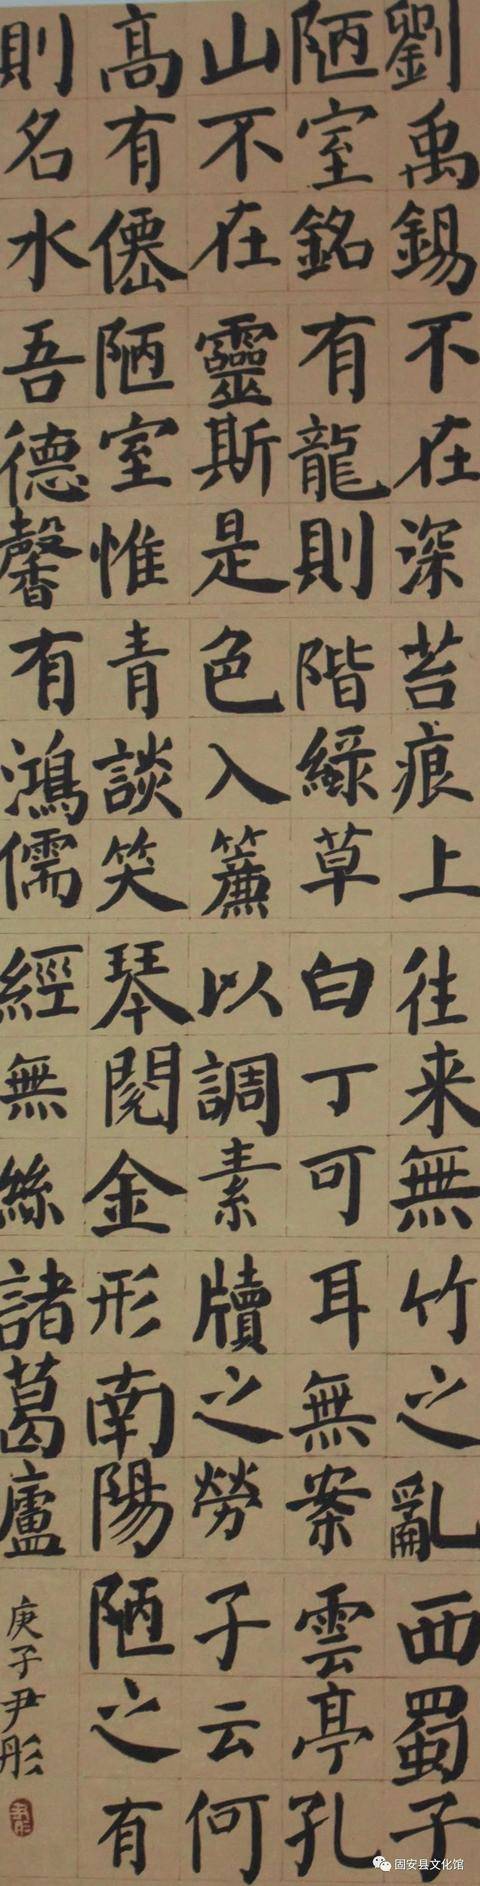 劉禹錫
陋室銘
山不在
高有僊
則名水
不在深
有龍則
靈斯是
陋室惟
吾德馨
苔痕上
階綠草
色入簾
青談笑
有鴻儒
往来無
白丁可
以調素
琴閱金
經無絲
竹之亂
耳無案
牘之勞
形南陽
諸葛廬
西蜀子
雲亭孔
子云何
陋之有
庚子尹彤
固安县文化馆